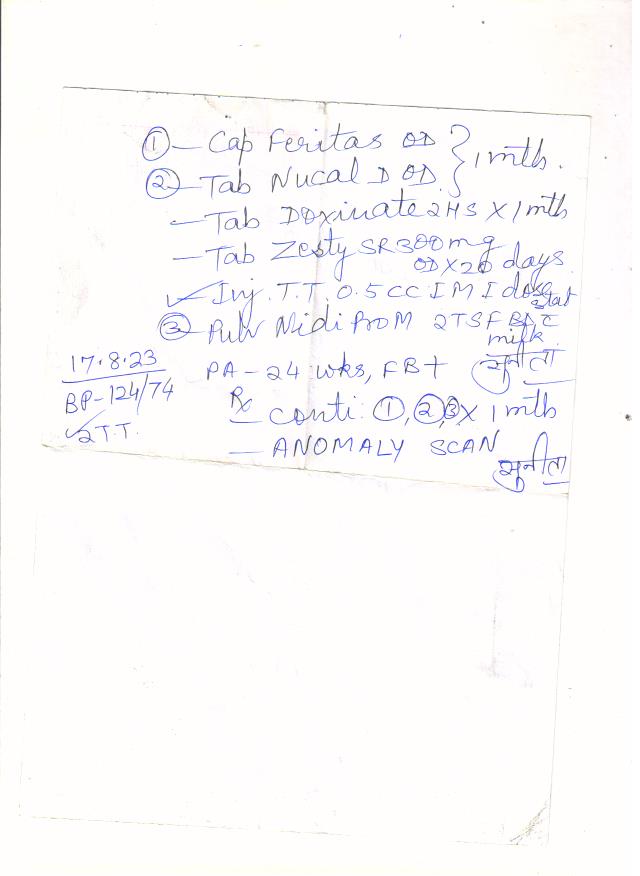 ① — Cap Feritas OD } 1 mth.
② — Tab Nucal D OD
— Tab Doxinate 2HS X 1 mth
— Tab Zesty SR 300 mg
OD X 20 days
✓ — Inj. T.T. 0.5 CC I M I dose stat
③ — Pulv Midi ProM 2TSF BD c̄
milk
सुनीता
17.8.23 PA — 24 wks, FB+
BP- 124/74
✓2 T.T.
Rx
— conti: ①, ②, ③ X 1 mth
— ANOMALY SCAN
सुनीता